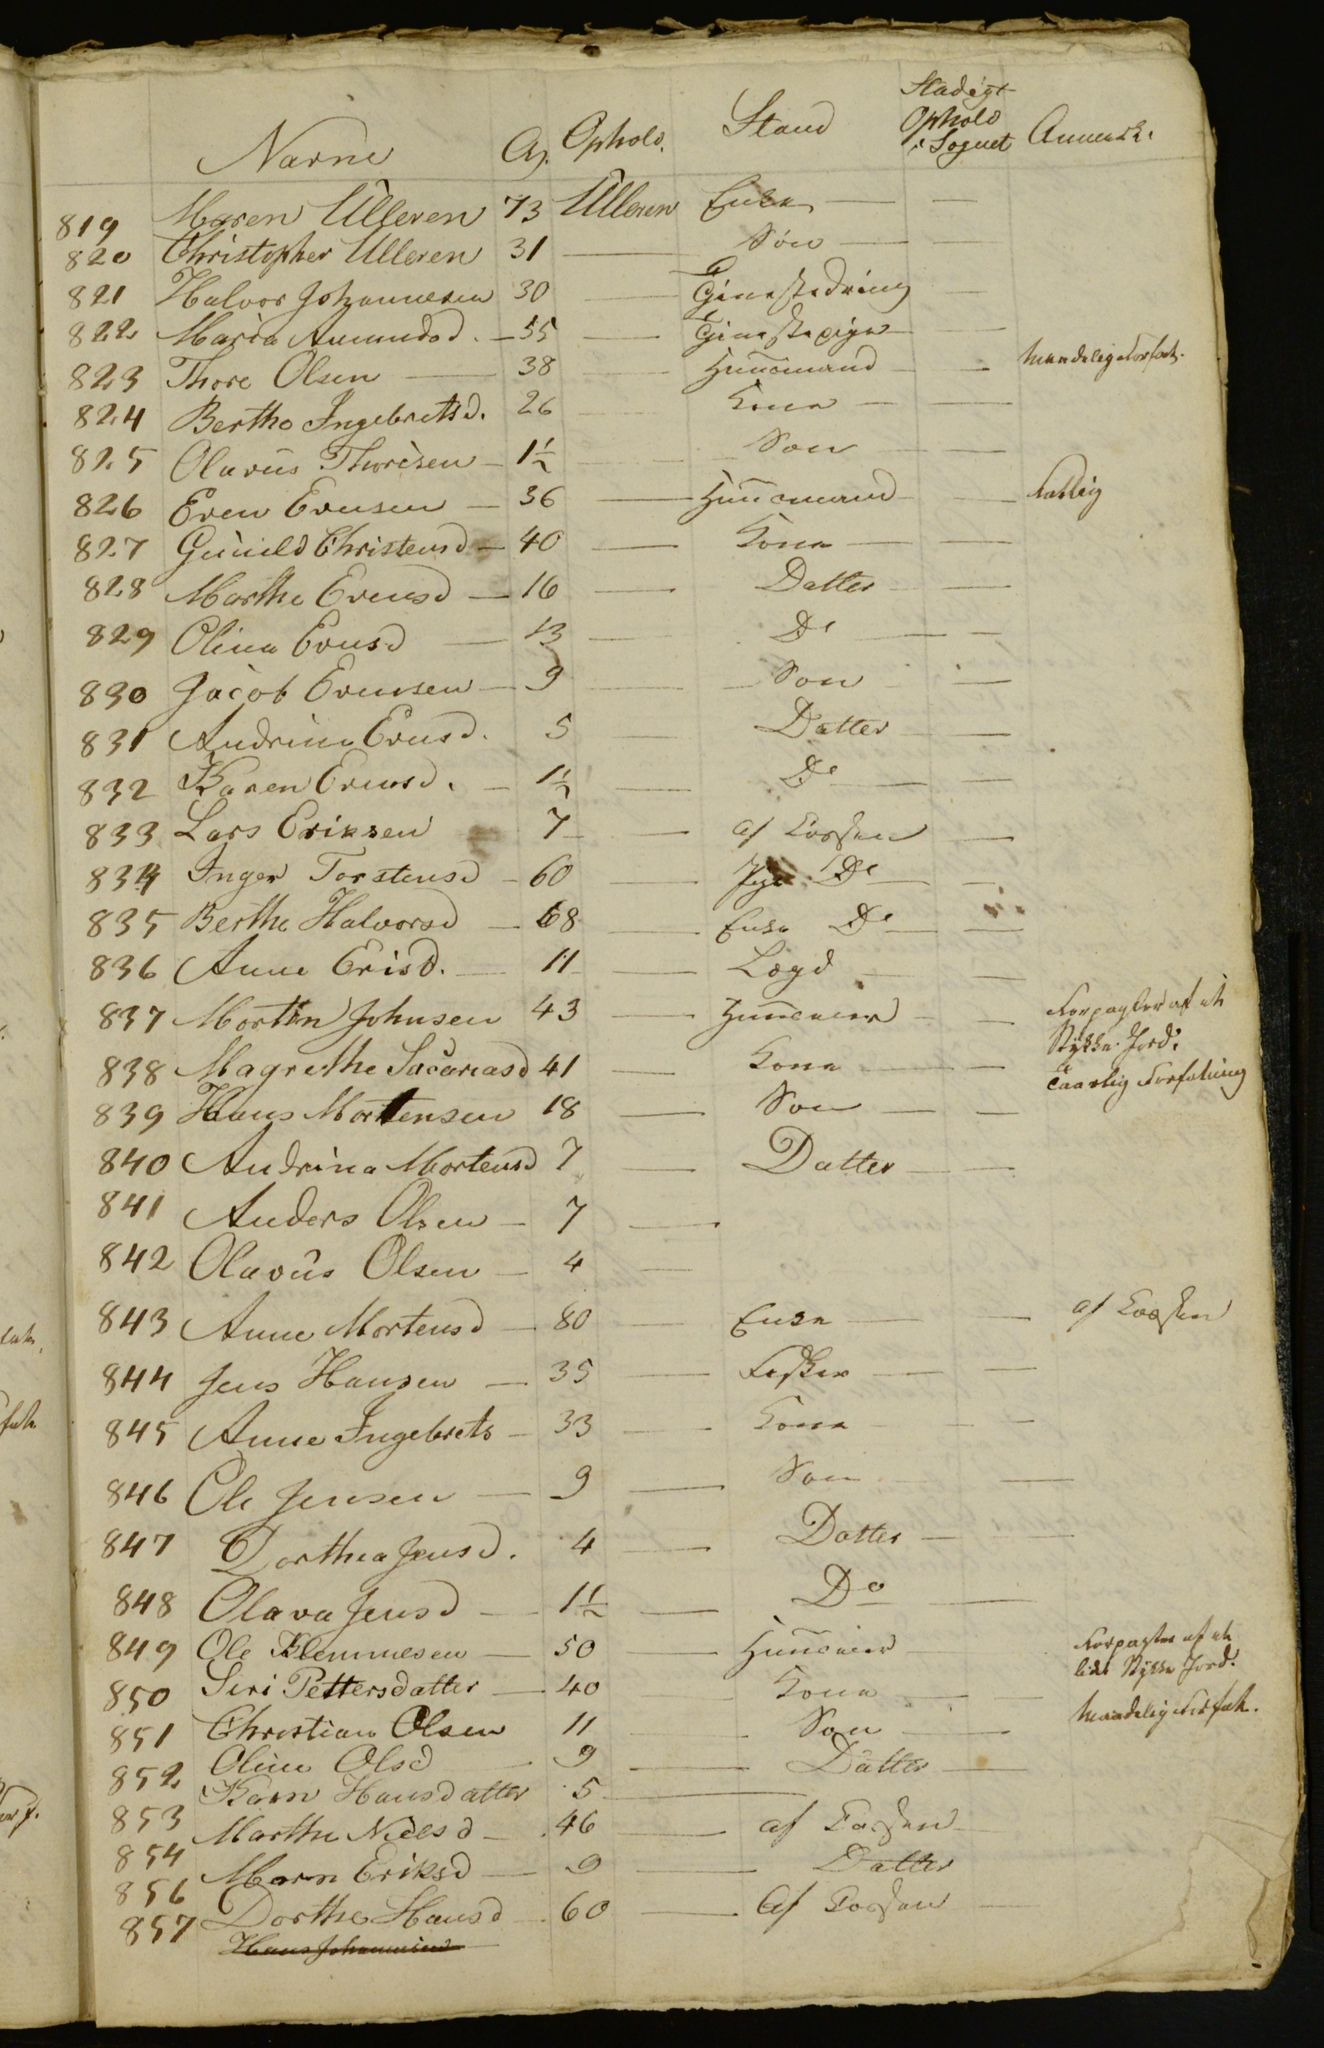 Navne Al. Ophold. Stand Stadigt Ophold i Sognet Anmerk.
819 Maren Ulleren 73 Ulleren Enke — —
820 Christopher Ulleren 31 — Søn — —
821 Halvor Johannesen 30 — Tienestedreng —
822 Maria Amundsd. — 55 — Tienestepige — —
823 Thore Olsen — 38 — Huusmand — — maadelig Forfat.
824 Berthe Ingebretsd. 26 — Kone — —
825 Olavus Thoresen — 1½ — Søn — —
826 Even Evensen — 36 — Huusmand — — Fattig
827 Gunild Christensd — 40 — Kone — —
828 Marthe Evensd — 16 — Datter — —
829 Olina Evensd — 13 — Do — —
830 Jacob Evensen — 9 — Søn — —
831 Andrine Evensd. 5 — Datter — —
832 Karen Evensd. — 1½ — Do — —
833 Lars Eriksen 7 — af Kassen —
834 Inger Torstensd — 60 — Pige Do — —
835 Berthe Halvorsd — 68 — Enke Do — —
836 Anne Erisd. — 11 — Lægd — —
837 Morten Johnsen 43 — Huuseier — — Forpagter af et
Stykke Jord.
838 Magrethe Sacariasd 41 — Kone — — Taarlig Forfatning
839 Hans Mortensen 18 — Søn — —
840 Andrina Mortensd 7 — Datter — —
841 Anders Olsen — 7 —
842 Olavus Olsen — 4 —
843 Anne Mortensd — 80 — Enke — — af Kassen
844 Jens Hansen — 35 — Fisker — —
845 Anne Ingebrets — 33 — Kone — —
846 Ole Jensen — 9 — Søn —
847 Dorthea Jensd. 4 — Datter —
848 Olava Jensd — 1½ — Do —
849 Ole Klemmesen — 50 — Huuseier Forpagter af et
lidet Stykke Jord.
850 Siri Pettersdatter — 40 Kone — — maadelig Forfat.
851 Christian Olsen 11 — Søn — —
852 Oline Olsd — 9 — Datter —
853 Karen Hansdatter 5 —
854 Marthe Nielsd — 46 — af Kassen —
856 Maren Eriksd — 9 — Datter
857 Dorthe Hansd — 60 — Af Kassen —
Hans Johannesen